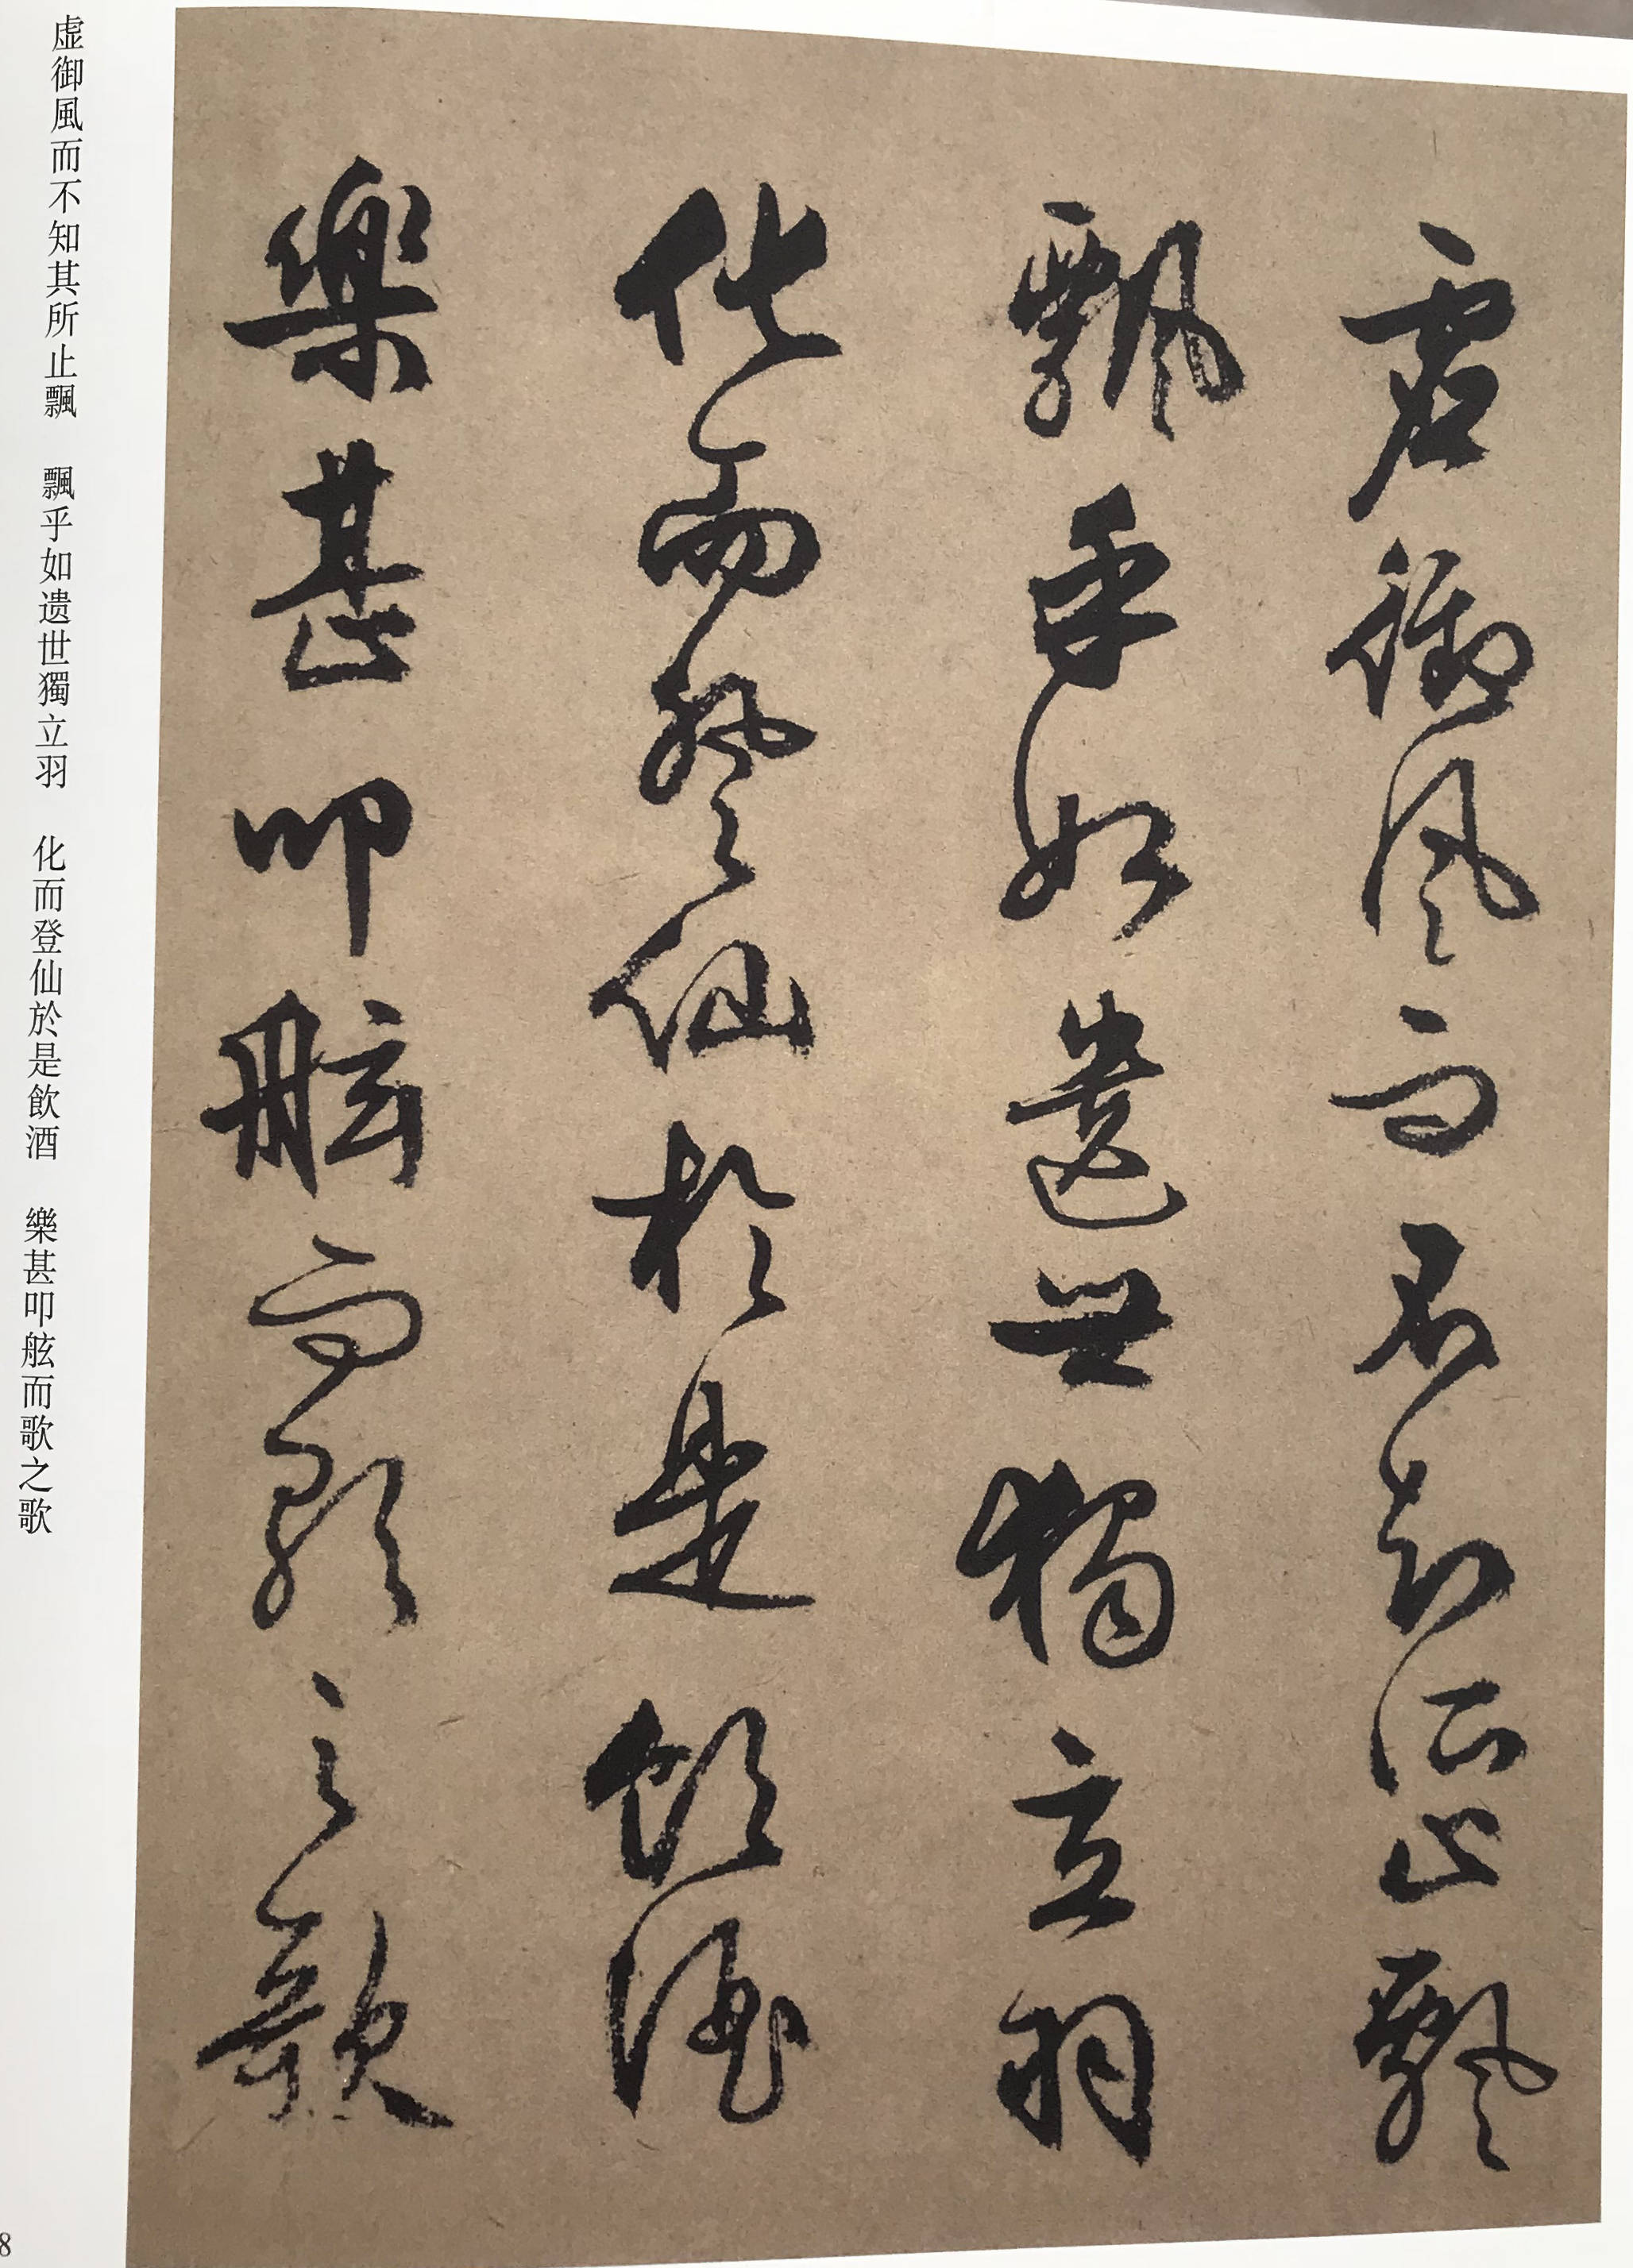 虛御風而不知所止飄
飄乎如遺世獨立羽
化而登仙於是飲酒
樂甚叩舷而歌之歌
虚御風而不知其所止飄 飄乎如遗世獨立羽 化而登仙於是飲酒 樂甚叩舷而歌之歌
8